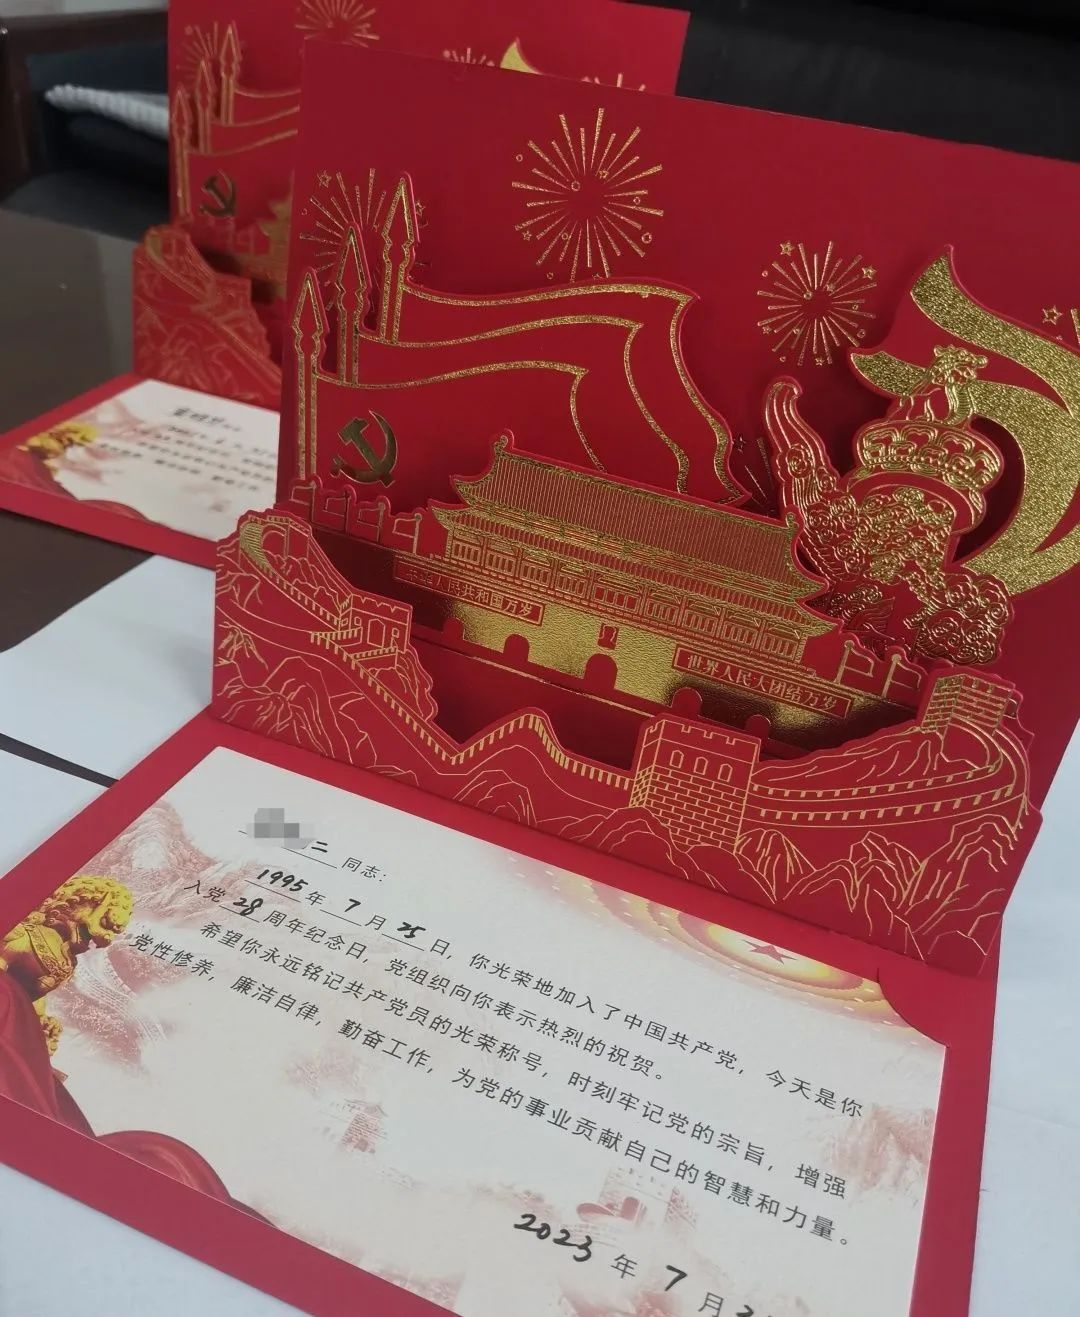 中华人民共和国万岁
世界人民大团结万岁
二 同志：
1995年7月25日，你光荣地加入了中国共产党，今天是你
入党28周年纪念日，党组织向你表示热烈的祝贺。
希望你永远铭记共产党员的光荣称号，时刻牢记党的宗旨，增强
党性修养，廉洁自律，勤奋工作，为党的事业贡献自己的智慧和力量。
2023年7月